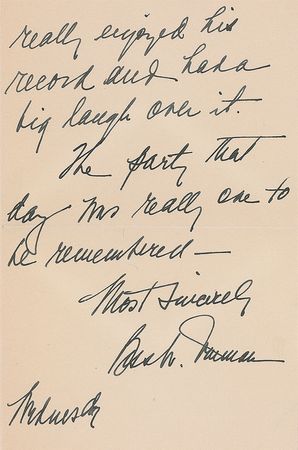 really enjoyed his
record and had a
big laugh over it.
The party that
day was really one to
be remembered —
Most sincerely
Bess W. Truman
Wednesday